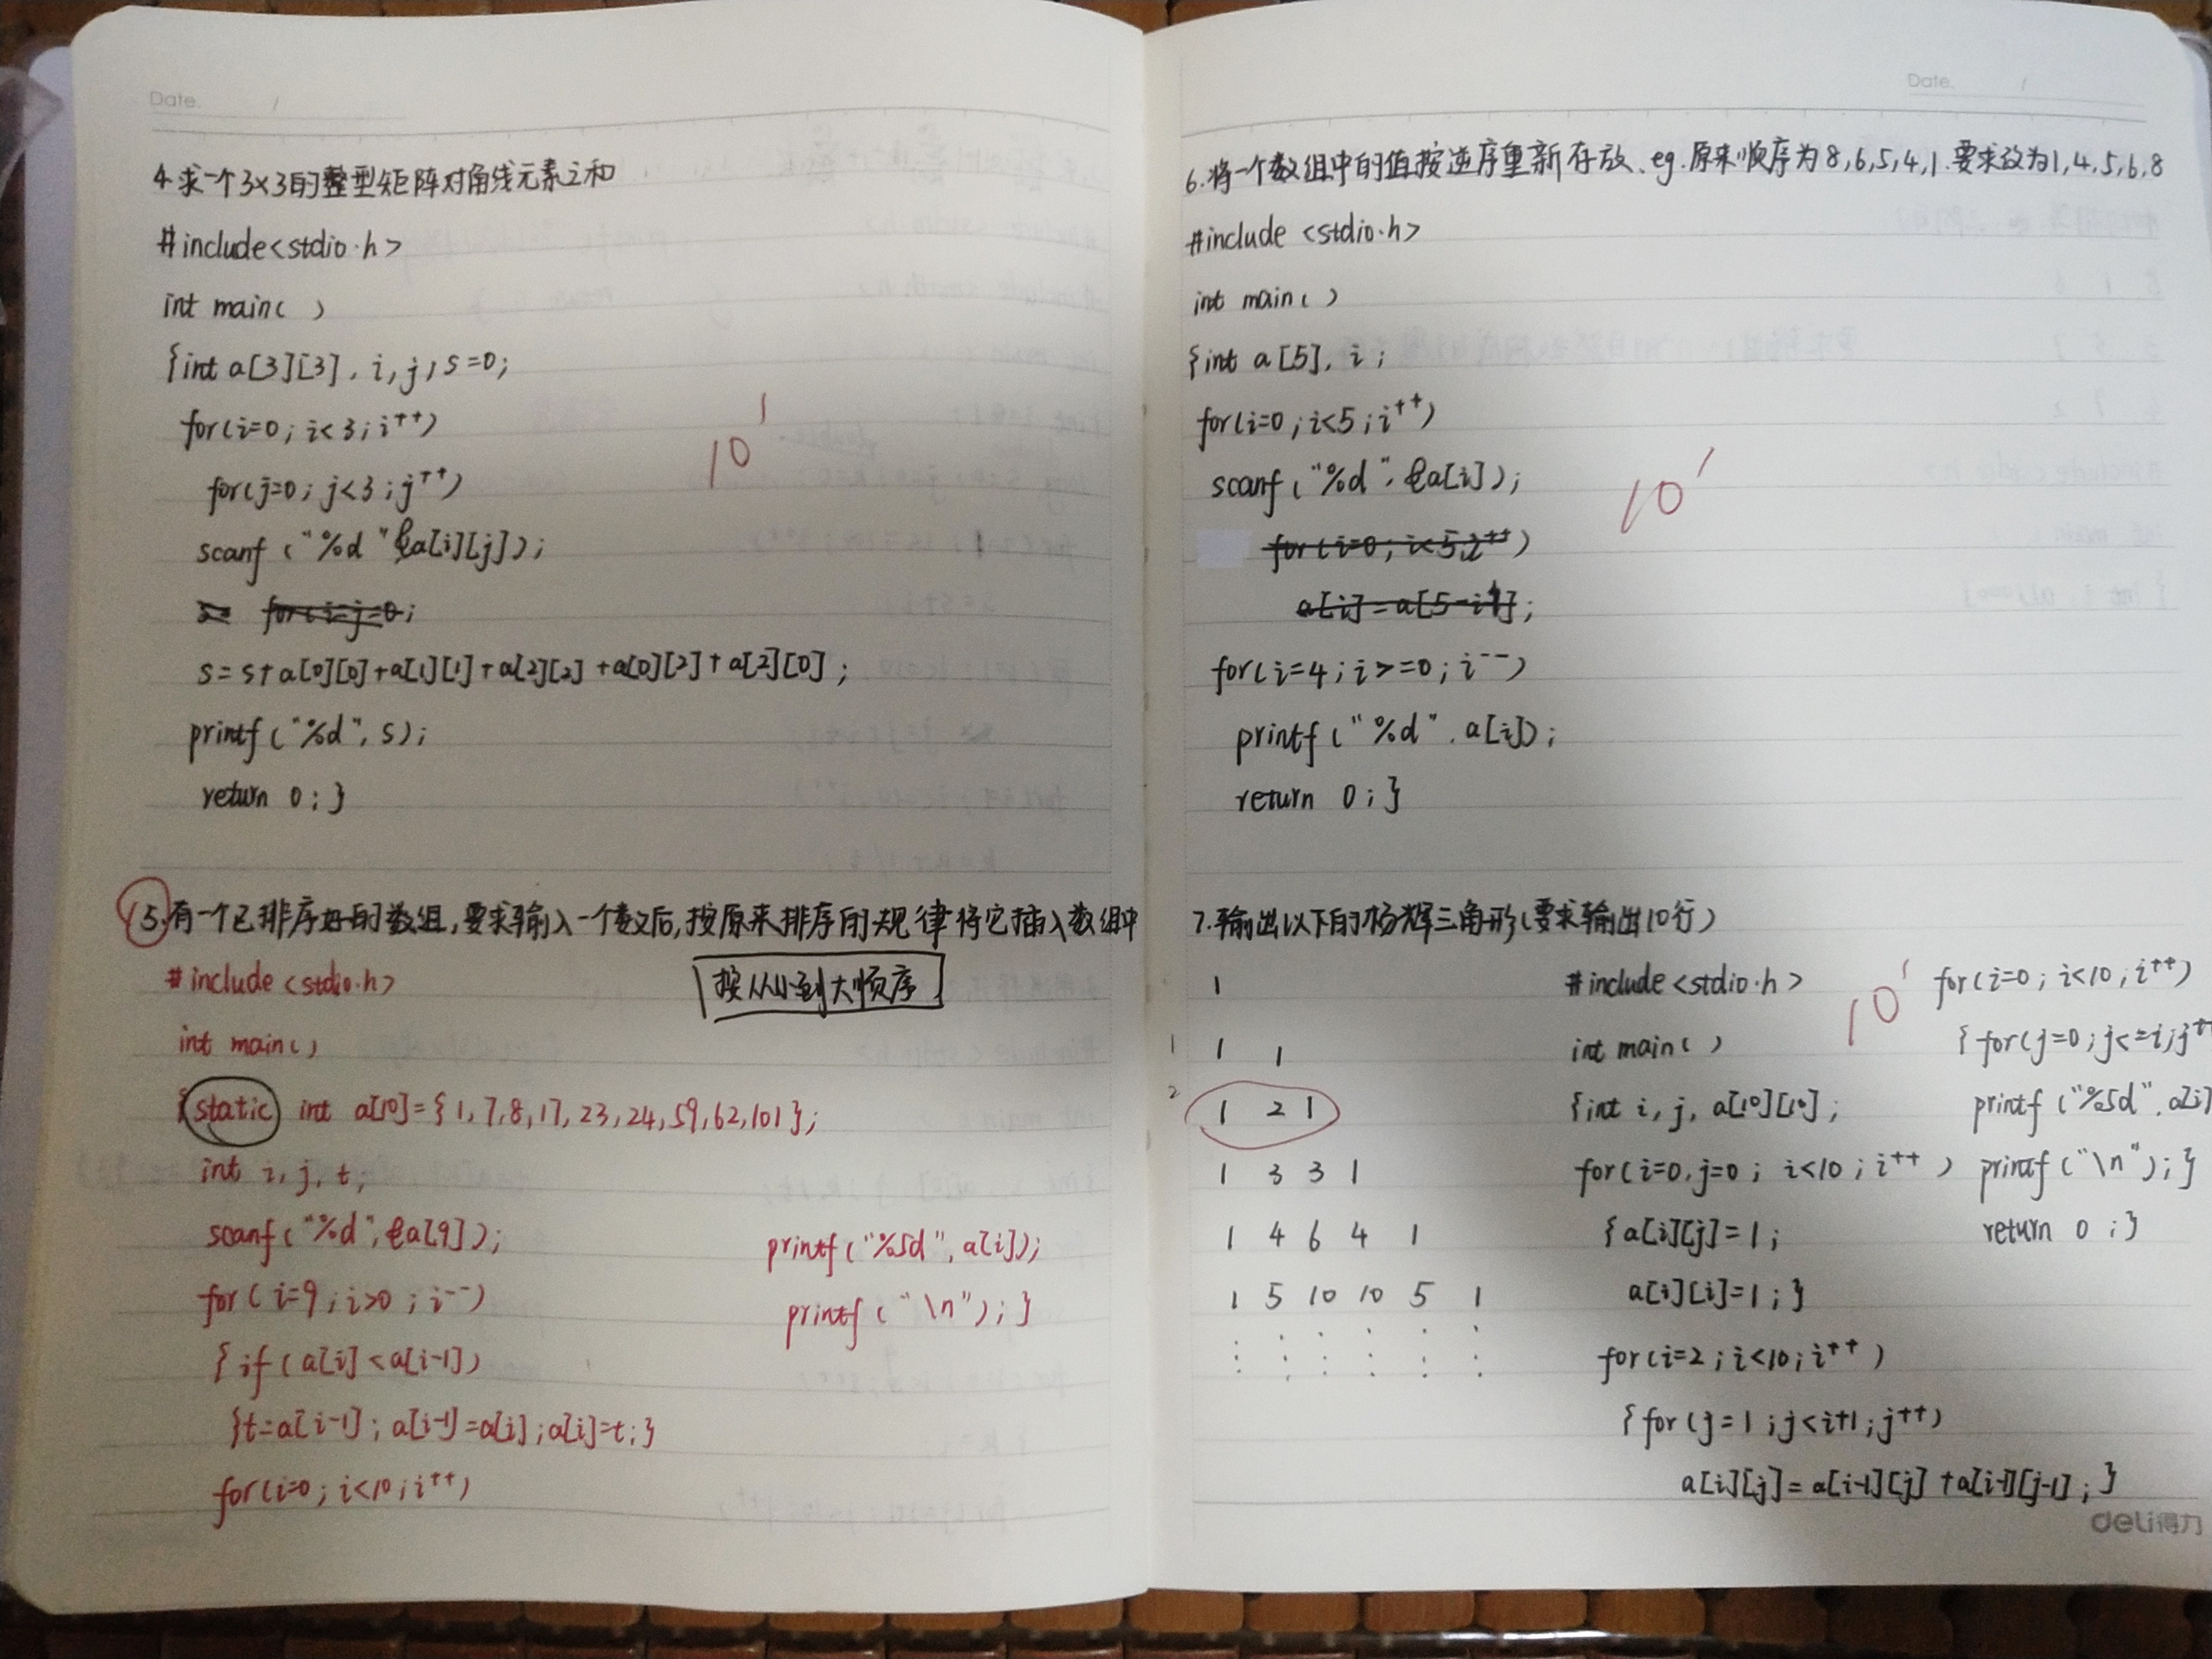 Date. /
4.求一个3×3的整型矩阵对角线元素之和
#include<stdio.h>
int main( )
{int a[3][3], i, j, s=0;
for(i=0; i<3; i++)
for(j=0; j<3; j++)
scanf ("%d" &a[i][j]);
for(i=j=0;
s=s+a[0][0]+a[1][1]+a[2][2]+a[0][2]+a[2][0];
printf("%d", s);
return 0; }
10'
5.有一个已排序好的数组,要求输入一个数后,按原来排序的规律将它插入数组中
按从小到大顺序
#include<stdio.h>
int main()
{static int a[10]={1,7,8,17,23,24,59,62,101};
int i, j, t;
scanf("%d",&a[9]);
for(i=9;i>0;i--)
{if(a[i]<a[i-1])
{t=a[i-1]; a[i-1]=a[i];a[i]=t;}
for(i=0; i<10;i++)
printf("%5d", a[i]);
printf("\n"); }
Date. /
6.将一个数组中的值按逆序重新存放、eg.原来顺序为8,6,5,4,1.要求改为1,4,5,6,8
#include <stdio.h>
int main( )
{int a[5], i;
for(i=0;i<5;i++)
scanf("%d", &a[i]);
for(i=0; i<5;i++)
a[i]=a[5-i-1];
for(i=4;i>=0;i--)
printf("%d", a[i]);
return 0;}
10'
7.输出以下的杨辉三角形(要求输出10行)
1
1 1 1
2 1 2 1
1 3 3 1
1 4 6 4 1
1 5 10 10 5 1
#include<stdio.h>
int main( )
{int i, j, a[10][10];
for(i=0,j=0; i<10;i++)
{a[i][j]=1;
a[i][i]=1;}
for(i=2;i<10;i++)
{for(j=1;j<i+1;j++)
a[i][j]=a[i-1][j]+a[i-1][j-1];}
10'
for(i=0; i<10;i++)
{for(j=0;j<=i;j++
printf("%5d", a[i]
printf("\n");}
return 0;}
deli得力